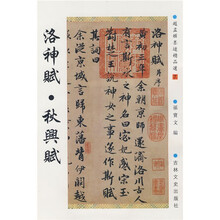 趙孟頫墨迹精品選
洛神賦·秋興賦
洛神賦 并序
黃初三年余朝京師還濟洛川古人
有言斯水之神名曰宓妃感宋玉
對楚王神女之事遂作斯賦
其詞曰
余從京域言歸東藩背伊闕越
吉林文史出版社